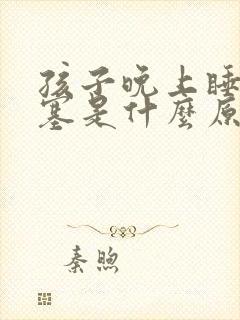 孩子晚上睡
塞是什麼原
秦煦